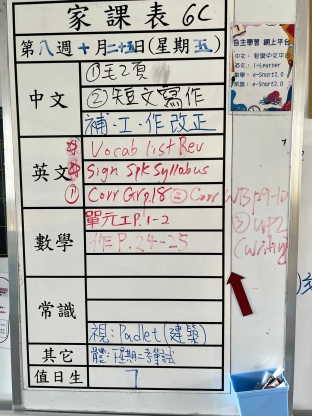 家課表 6C
第八週十月二十五日(星期五)
中文
①毛2頁
②短文寫作
補、工、作改正
英文
Vocab list Rev
Sign Spk Syllabus
① Corr Grp.18 ② Corr WB p9-10
③ WP2
(Writing)
數學
單元工P.1-2
作P.24-25
常識
視:Padlet(建築)
其它
體:星期二考筆試
值日生
7
自主學習 網上平台
中文:
英文: i-Learner
數學: e-Smart2.0
常識: e-Smart2.0